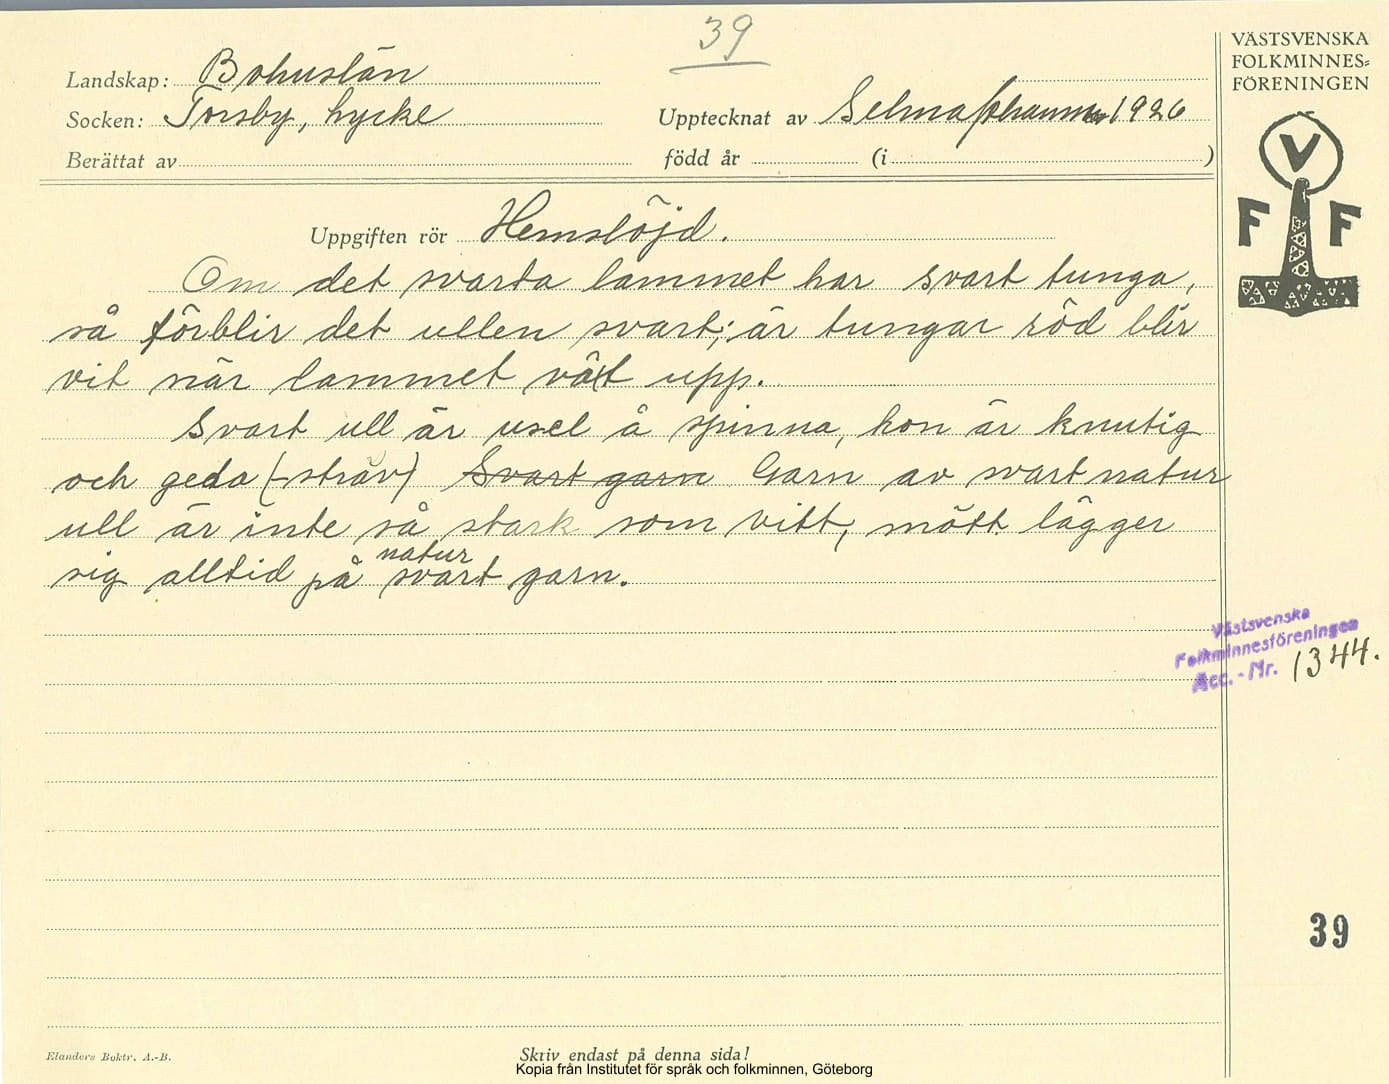 39
VÄSTSVENSKA
FOLKMINNES=
FÖRENINGEN
V
F F
Landskap: Bohuslän
Socken: Torsby, Lycke
Upptecknat av Selma Johansson 1926
Berättat av
född år (i )
Uppgiften rör Hemslöjd.
Om det svarta lammet har svart tunga,
så förblir det ullen svart; är tungan röd blir
vit när lammet växt upp.
Svart ull är usel å spinna, hon är knutig
och geda (-sträv) Svart garn Garn av svart natur
ull är inte så stark som vitt, mött lägger
sig alltid på natur svart garn.
Västsvenska
Folkminnesföreningen
Acc.-Nr. 1344.
39
Elanders Boktr. A.-B.
Skriv endast på denna sida!
Kopia från Institutet för språk och folkminnen, Göteborg